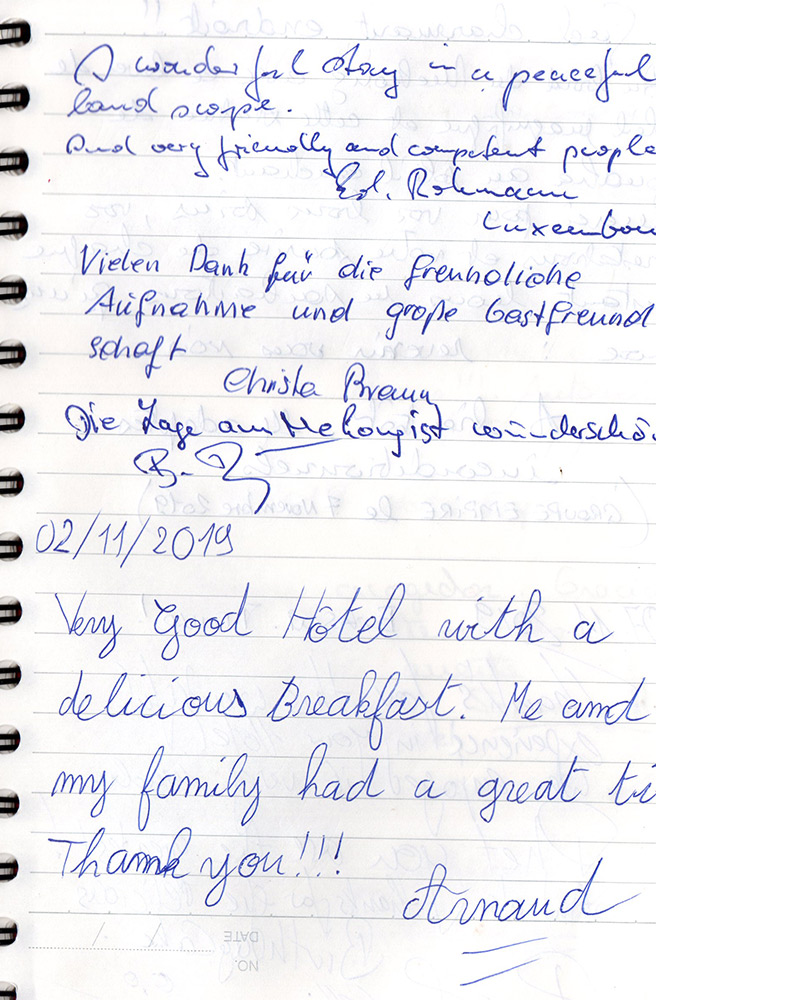 A wonderful stay in a peaceful
land scape.
And very friendly and competent people
Rohmann
Luxembou
Vielen Dank für die freundliche
Aufnahme und große Gastfreund
schaft
Christa Braun
Die Lage am Mekong ist wunderschö
02/11/2019
Very Good Hôtel with a
delicious Breakfast. Me and
my family had a great ti
Thank you!!!
Arnaud